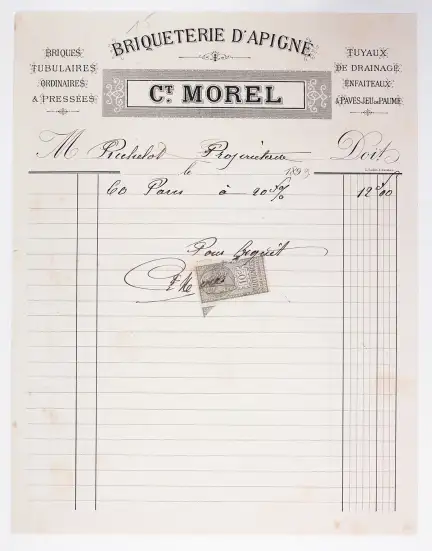 BRIQUETERIE D'APIGNÉ
BRIQUES
TUBULAIRES
ORDINAIRES
& PRESSÉES
CT. MOREL
TUYAUX
DE DRAINAGE
ENFAITEAUX
& PAVÉS JEU DE PAUME
M Richelot Propriétaire Doit
le 1893
60 Pavés à 20 f % 12 f 00
Pour acquit
Ct Morel